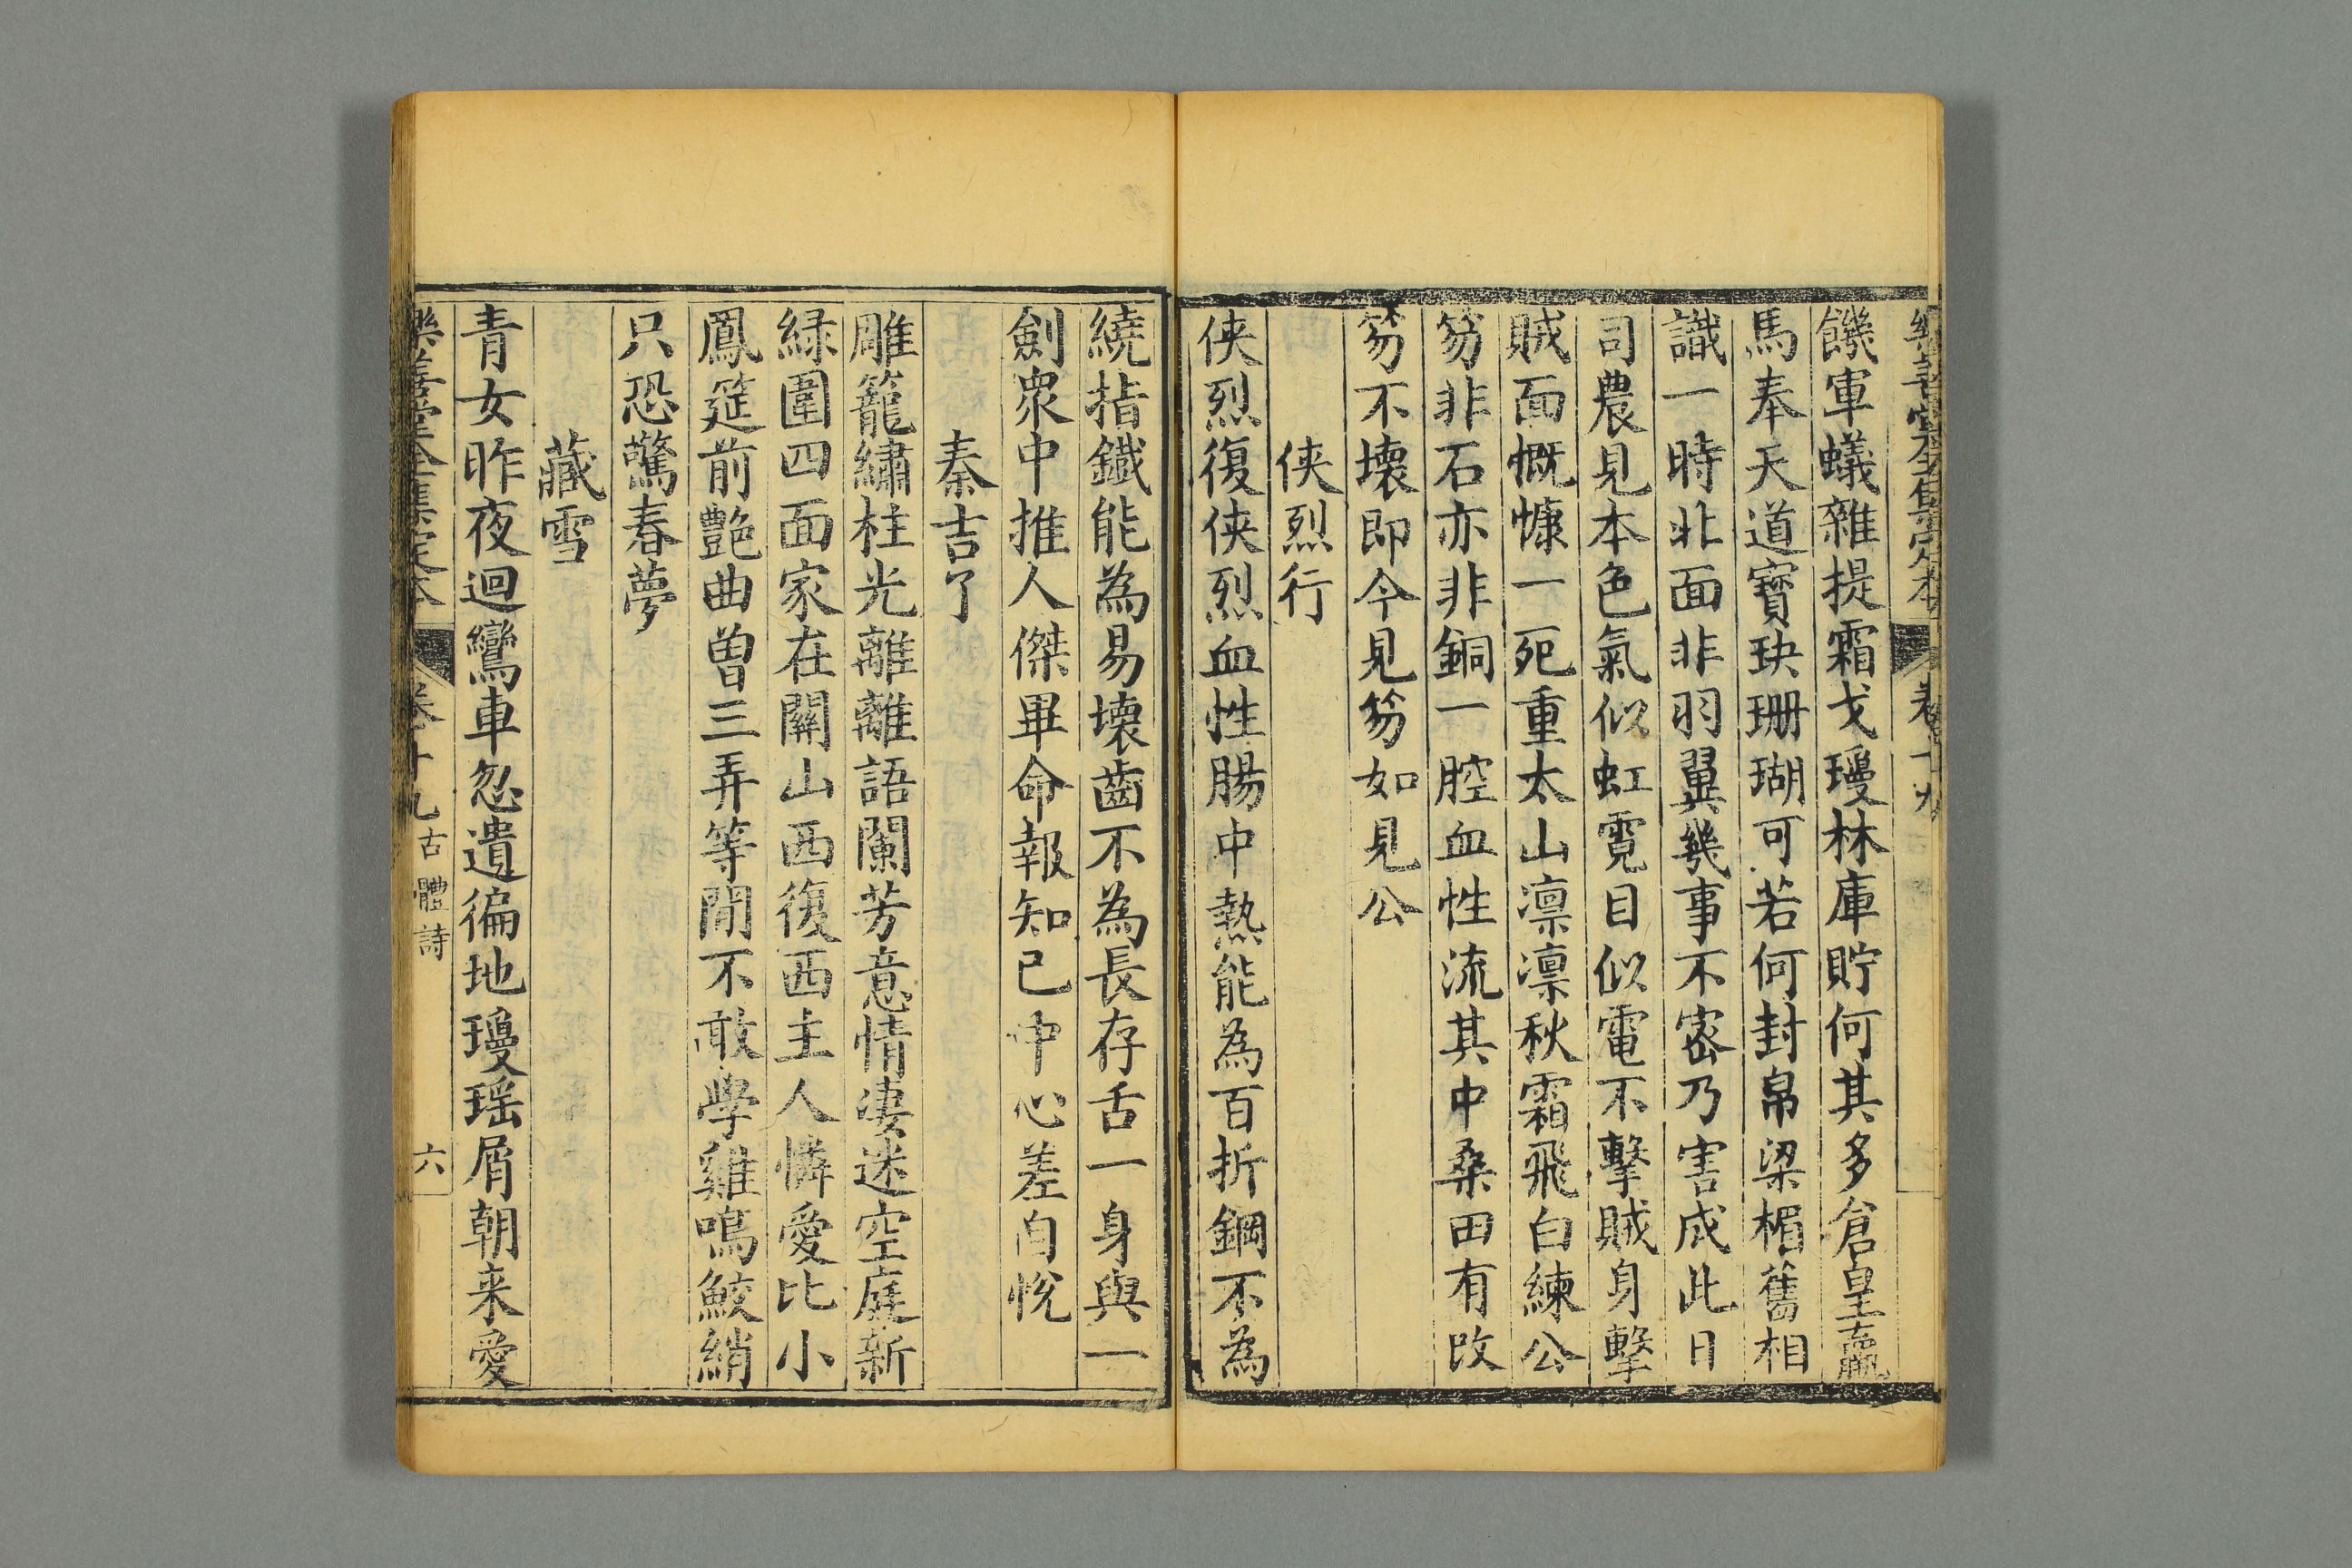 樂善堂全集定本 卷十九
饑軍蟻雜提霜戈瓊林庫貯何其多倉皇羸
馬奉天道寶玦珊瑚可若何封帛梁楣舊相
識一時北面非羽翼幾事不密乃害成此日
司農見本色氣似虹霓目似電不擊賊身擊
賊面慨慷一死重太山凛凛秋霜飛白練公
笏非石亦非銅一腔血性流其中桑田有改
笏不壞即今見笏如見公
俠烈行
俠烈復俠烈血性腸中熱能為百折鋼不為
繞指鐵能為易壞齒不為長存舌一身與一
劍衆中推人傑畢命報知已中心差自悅
秦吉了
雕籠繡柱光離離語闌芳意情淒迷空庭新
緑圍四面家在關山西復西主人憐愛比小
鳳筵前艶曲曾三弄等閒不敢學雞鳴鮫綃
只恐驚春夢
藏雪
青女昨夜迴鸞車忽遺徧地瓊瑶屑朝来愛
樂善堂全集定本 卷十九 古體詩 六